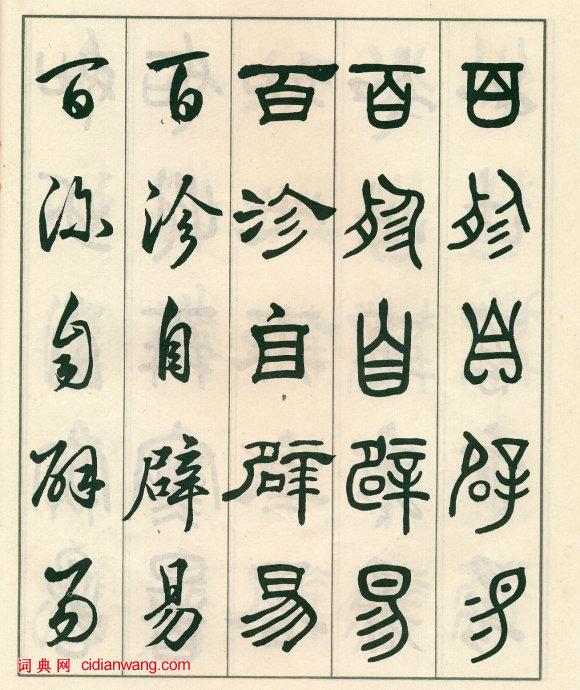 百殄自辟易
百殄自辟易
百沴自辟易
百沴自辟易
百沴自辟易
词典网 cidianwang.com